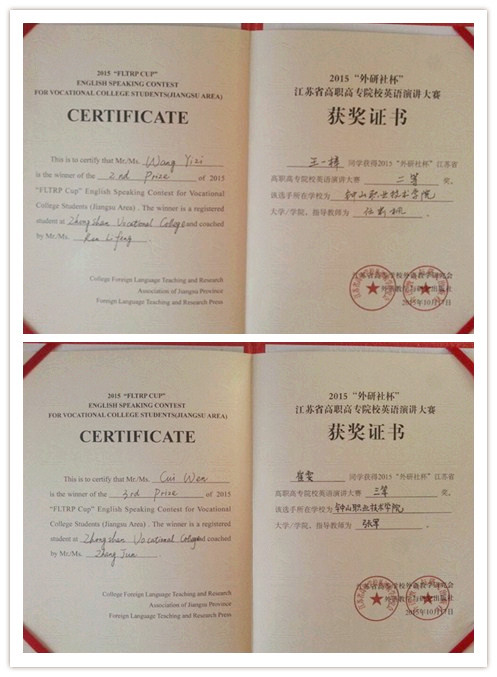 2015 "FLTRP CUP"
ENGLISH SPEAKING CONTEST
FOR VOCATIONAL COLLEGE STUDENTS(JIANGSU AREA)
CERTIFICATE
This is to certify that Mr./Ms. Wang Yizi
is the winner of the 2nd Prize of 2015
"FLTRP Cup" English Speaking Contest for Vocational
College Students (Jiangsu Area) . The winner is a registered
student at Zhongshan Vocational College and coached
by Mr./Ms. Ren Lifeng .
College Foreign Language Teaching and Research
Association of Jiangsu Province
Foreign Language Teaching and Research Press
2015 "外研社杯"
江苏省高职高专院校英语演讲大赛
获奖证书
王一 同学获得2015 "外研社杯" 江苏省
高职高专院校英语演讲大赛 二等 奖。
该选手所在学校为 钟山职业技术学院
大学/学院，指导教师为 。
江苏省高等学校外语教学研究会
外语教学与研究出版社
2015年10月17日
2015 "FLTRP CUP"
ENGLISH SPEAKING CONTEST
FOR VOCATIONAL COLLEGE STUDENTS(JIANGSU AREA)
CERTIFICATE
This is to certify that Mr./Ms. Cui Wen
is the winner of the 3rd Prize of 2015
"FLTRP Cup" English Speaking Contest for Vocational
College Students (Jiangsu Area) . The winner is a registered
student at Zhongshan Vocational College and coached
by Mr./Ms. Zhang Jun .
College Foreign Language Teaching and Research
Association of Jiangsu Province
Foreign Language Teaching and Research Press
2015 "外研社杯"
江苏省高职高专院校英语演讲大赛
获奖证书
崔雯 同学获得2015 "外研社杯" 江苏省
高职高专院校英语演讲大赛 三等 奖。
该选手所在学校为 钟山职业技术学院
大学/学院，指导教师为 张军 。
江苏省高等学校外语教学研究会
外语教学与研究出版社
2015年10月17日